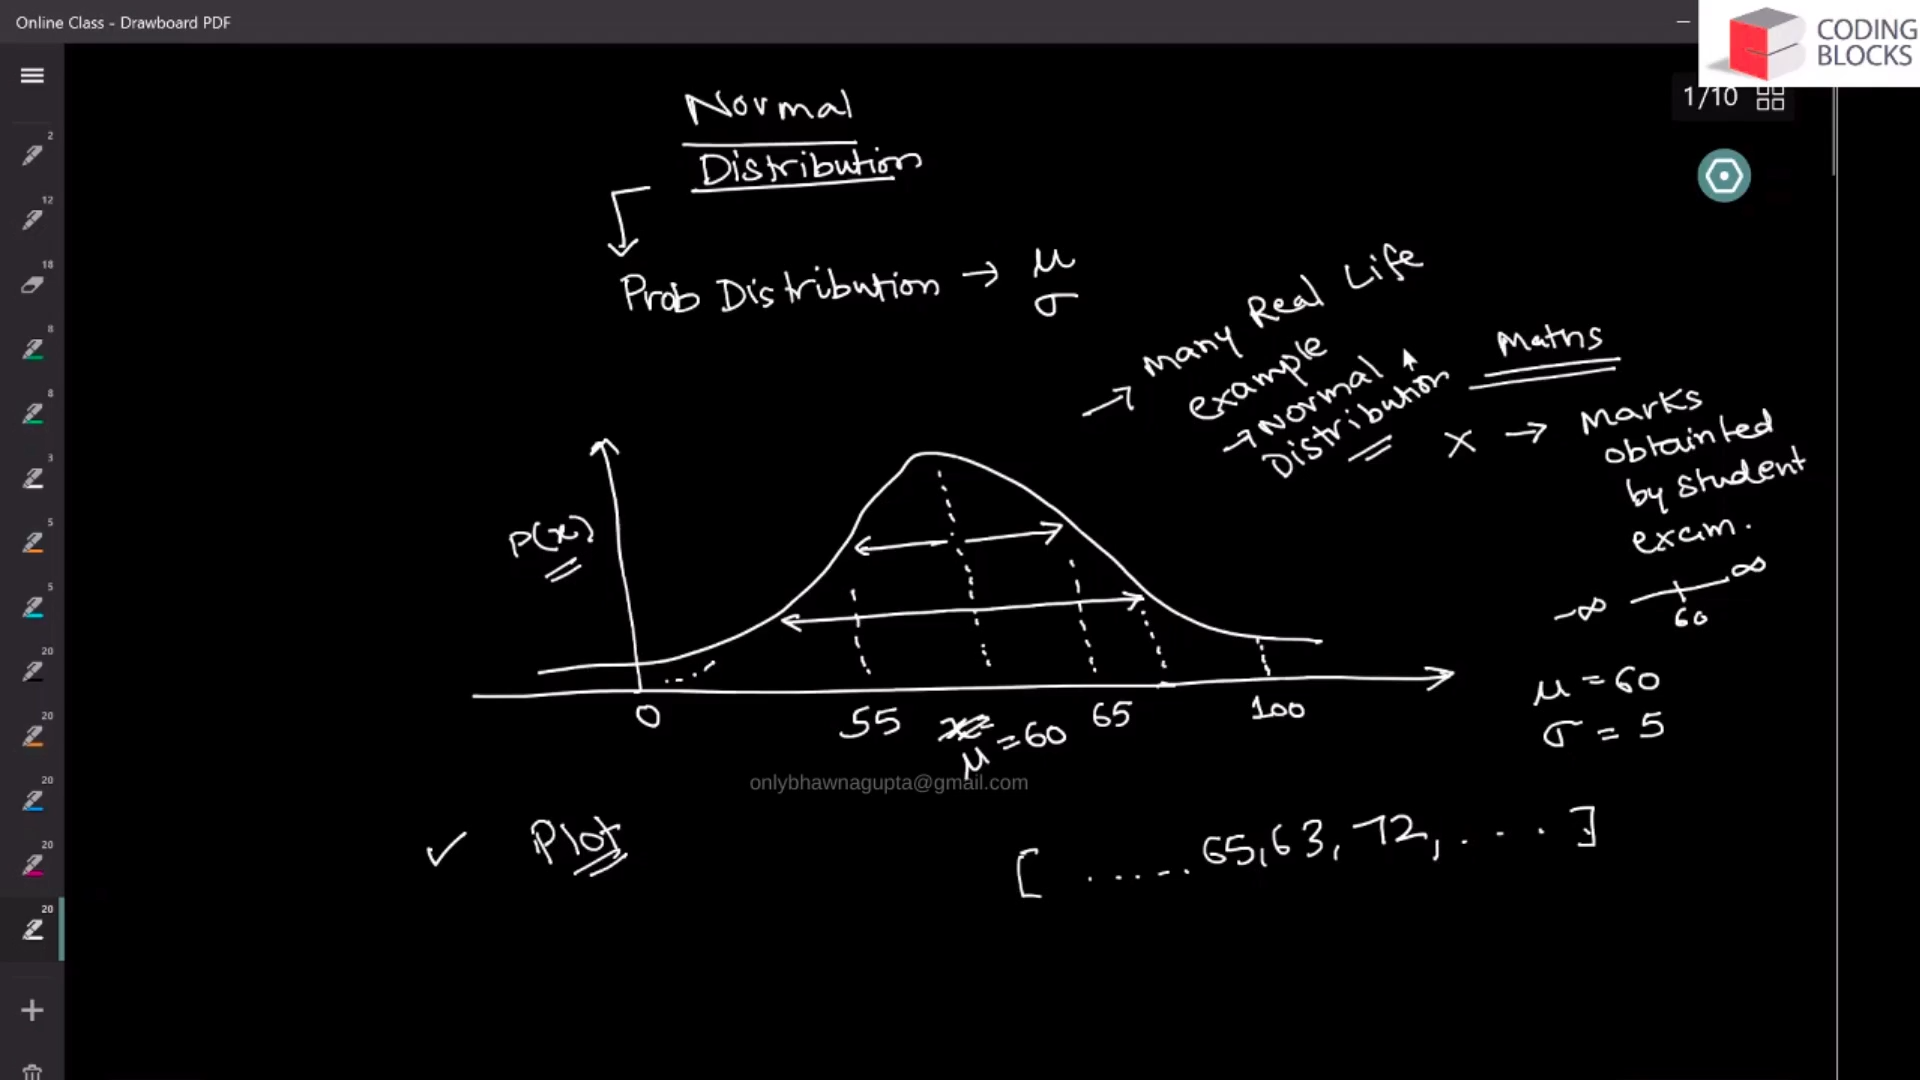 Online Class - Drawboard PDF
CODING
BLOCKS
1/10
2
12
18
8
8
3
5
5
20
20
20
20
20
Normal
Distribution
Prob Distribution → μ
σ
→ Many Real Life
example
→ Normal
Distribution
Maths
X → Marks
obtainted
by student
exam.
-∞ ∞
60
μ = 60
σ = 5
P(x)
0
55
μ = 60
65
100
onlybhawnagupta@gmail.com
✓ Plot
[ ...... 65, 63, 72, .... ]